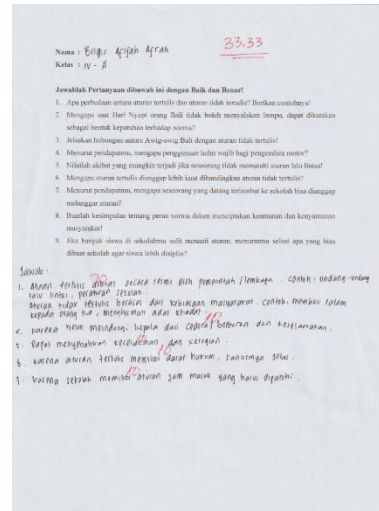 33.33
Nama : Belqis Afifah Azrah
Kelas : IV - A
Jawablah Pertanyaan dibawah ini dengan Baik dan Benar!
1. Apa perbedaan antara aturan tertulis dan aturan tidak tertulis? Berikan contohnya!
2. Mengapa saat Hari Nyepi orang Bali tidak boleh menyalakan lampu, dapat dikatakan
sebagai bentuk kepatuhan terhadap norma?
3. Jelaskan hubungan antara Awig-awig Bali dengan aturan tidak tertulis?
4. Menurut pendapatmu, mengapa penggunaan helm wajib bagi pengendara motor?
5. Nilailah akibat yang mungkin terjadi jika seseorang tidak mematuhi aturan lalu lintas!
6. Mengapa aturan tertulis dianggap lebih kuat dibandingkan aturan tidak tertulis?
7. Menurut pendapatmu, mengapa seseorang yang datang terlambat ke sekolah bisa dianggap
melanggar aturan?
8. Buatlah kesimpulan tentang peran norma dalam menciptakan keamanan dan kenyamanan
masyarakat!
9. Jika banyak siswa di sekolahmu sulit menaati aturan, menurutmu solusi apa yang bisa
dibuat sekolah agar siswa lebih disiplin?
Jawab :
20
1. Aturan tertulis dibuat secara resmi oleh pemerintah / lembaga . contoh : undang-undang
lalu lintas , peraturan sekolah .
Aturan tidak tertulis berasal dari kebiasaan masyarakat . contoh : memberi salam
kepada orang tua , menghormati adat istiadat .
10
4. karena helm melindungi kepala dari cedera benturan dan keselamatan .
5. Dapat menyebabkan kecelakaan , dan kerugian .
10
6. karena aturan tertulis memiliki dasar hukum , sanksinya jelas .
10
7. karena sekolah memiliki aturan jam masuk yang harus dipatuhi .